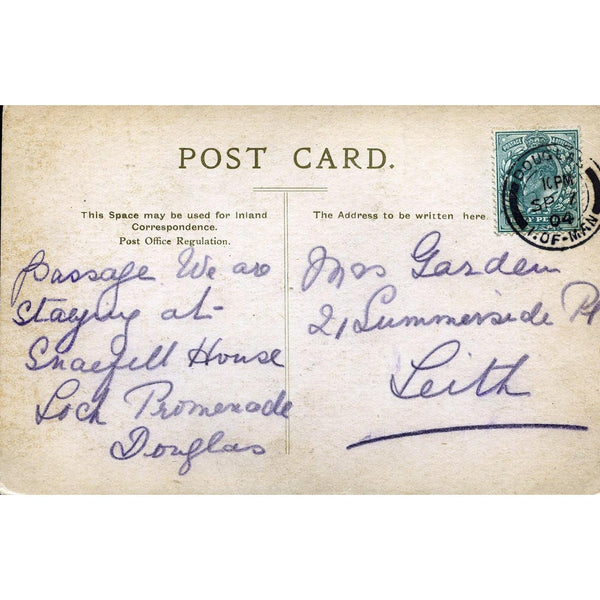 POST CARD.
This Space may be used for Inland
Correspondence.
Post Office Regulation.
The Address to be written here.
DOUGLAS
SP 7
04
I.OF-MAN
passage We are
staying at-
Snaefell House
Loch Promenade
Douglas
Mrs Garden
21 Summerside Pl
Leith